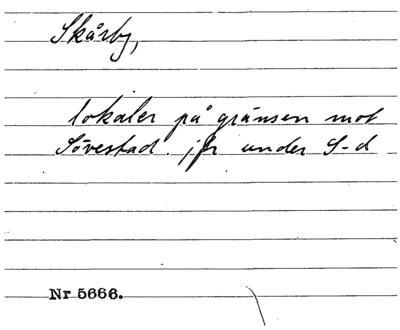 Skårby,
lokaler på gränsen mot
Sövestad. jfr under S-d
Nr 5666.